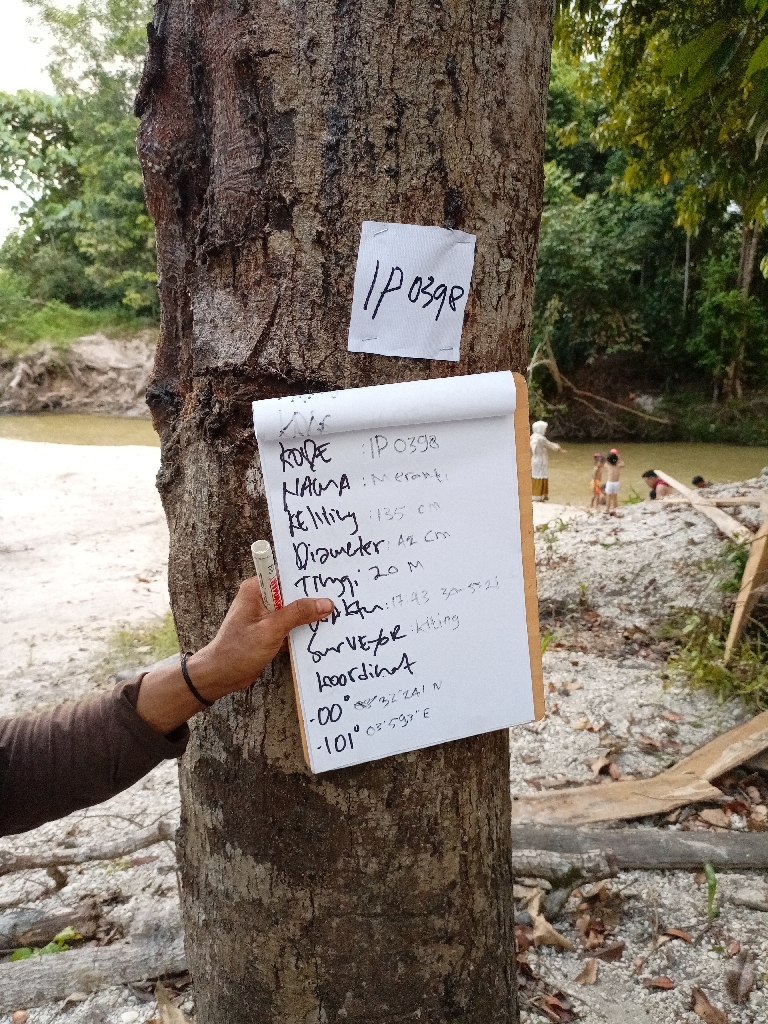 IP 0398
KODE : IP 0398
NAMA : Meranti
Keliling : 135 cm
Diameter : 42 cm
Tinggi : 20 M
SurVEyoR : kiting
koordinat
-00°
-101° 03'593"E